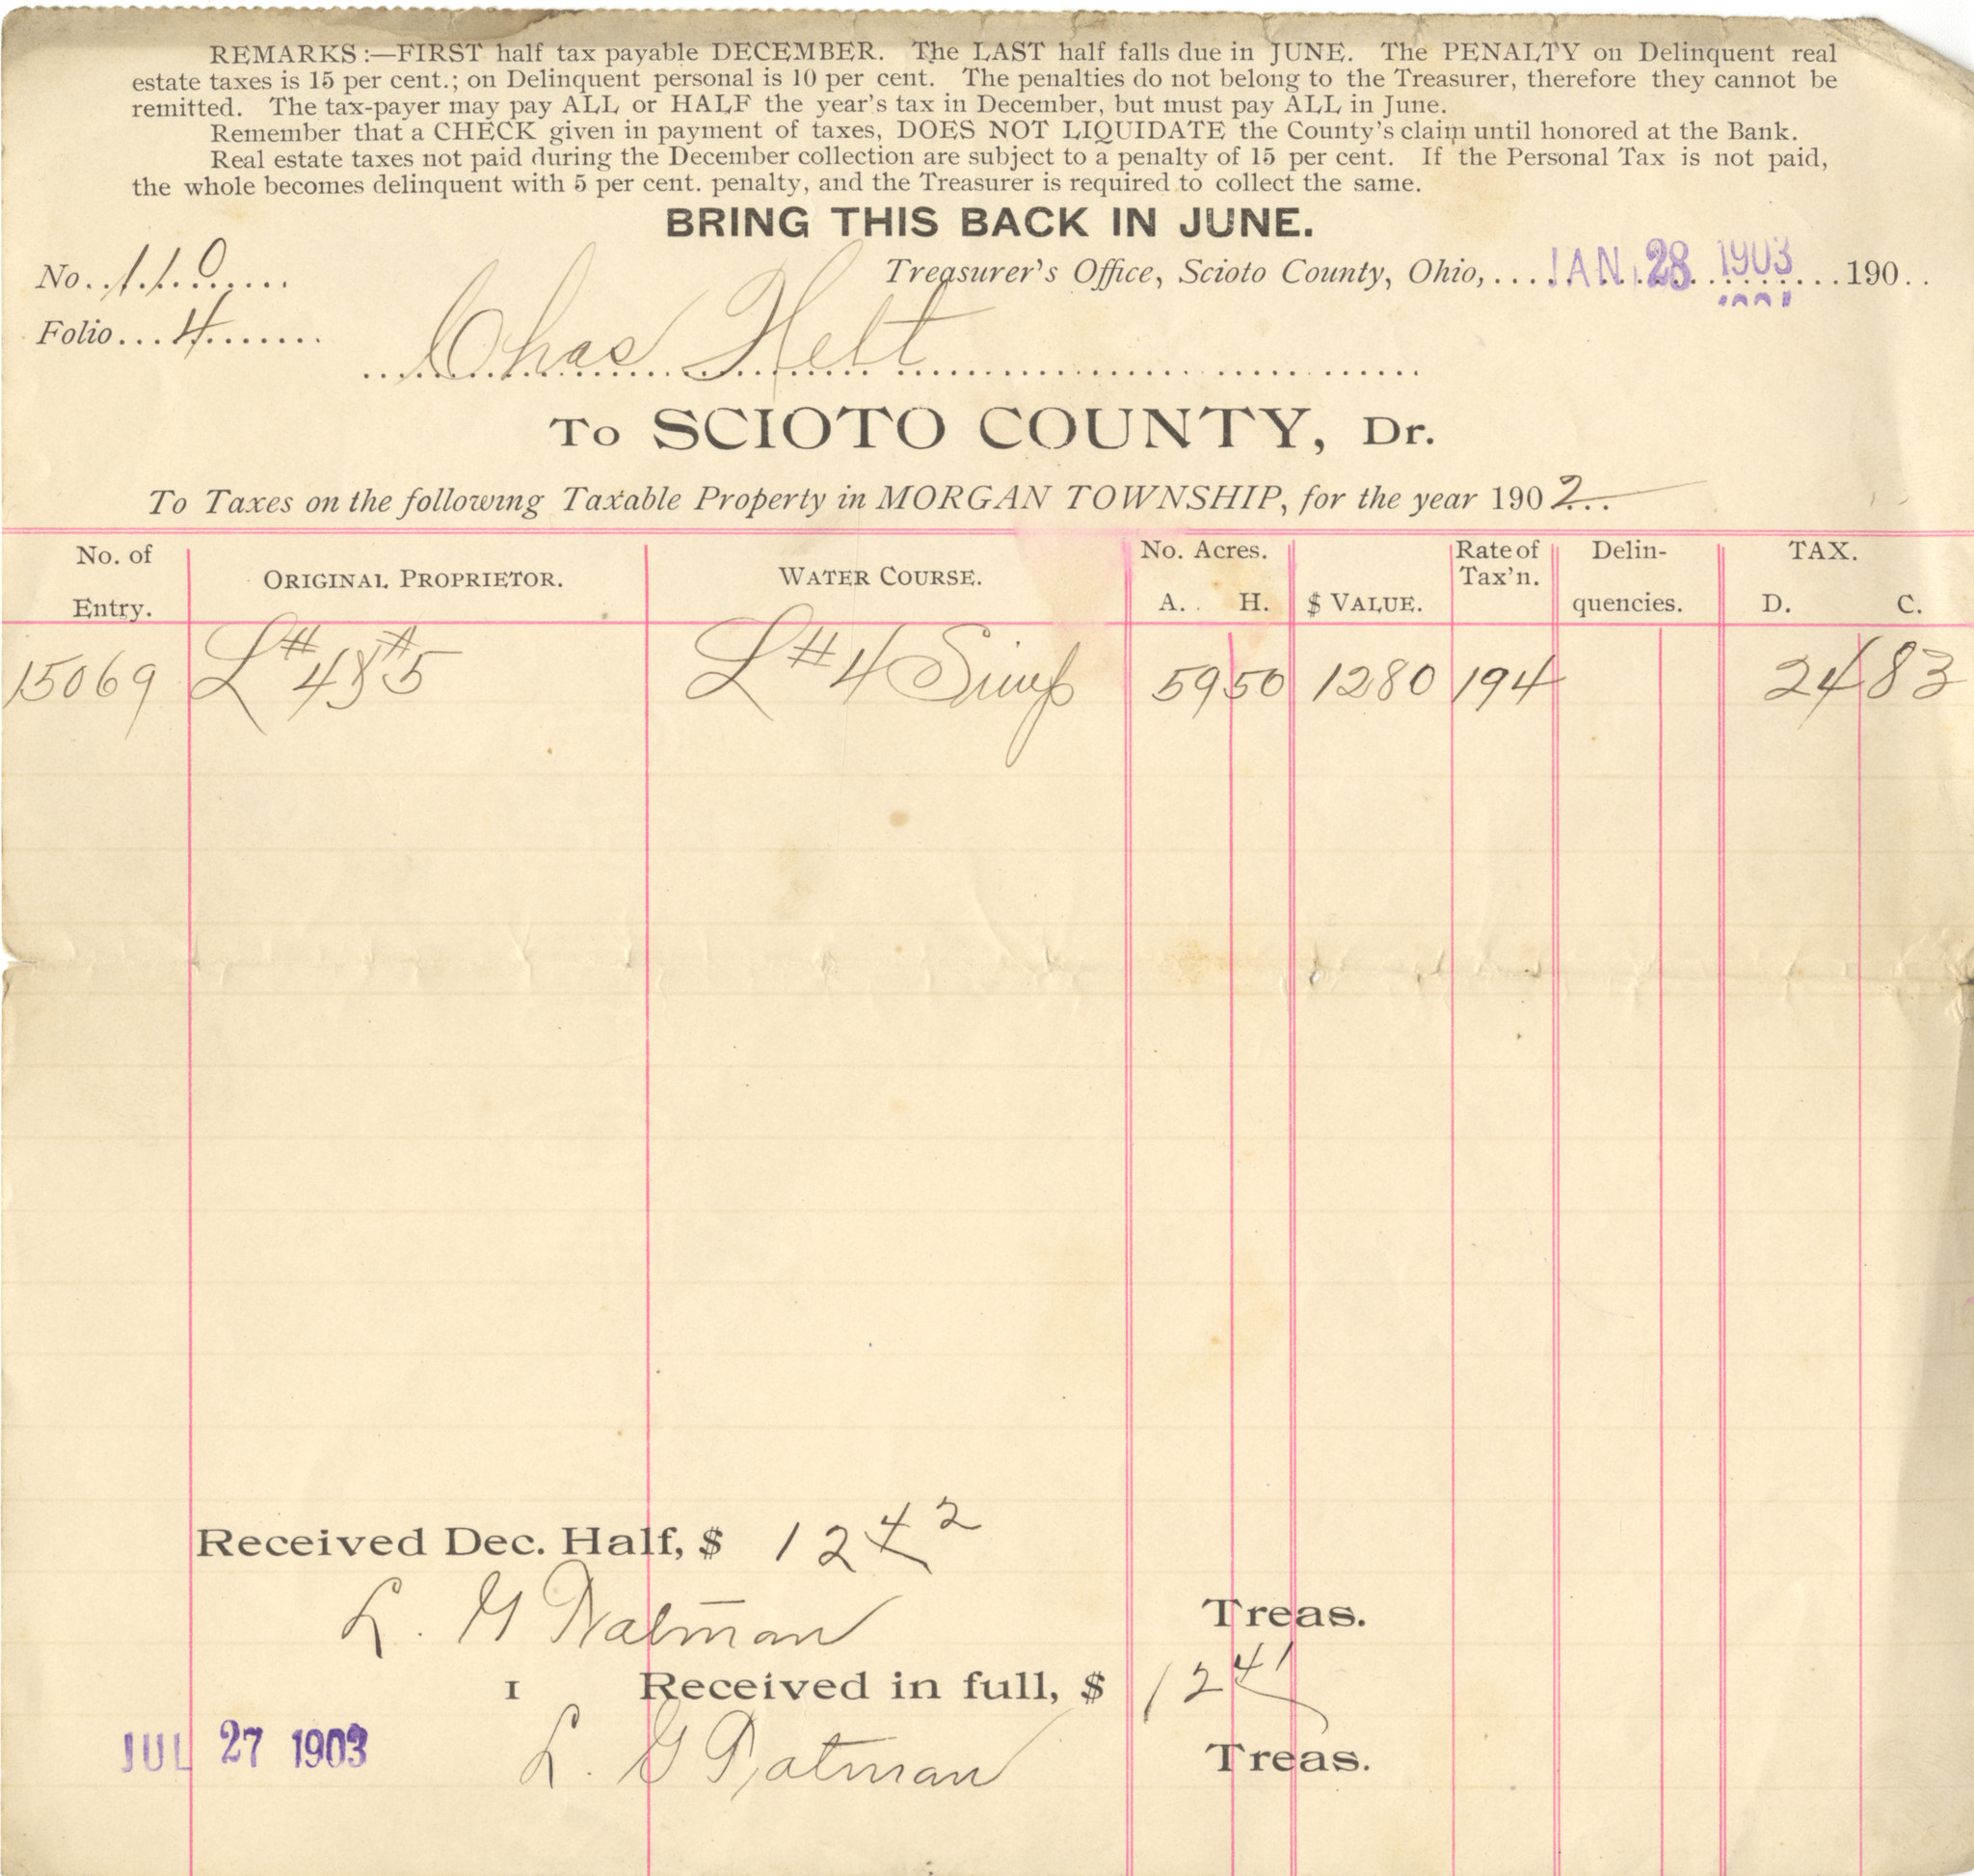 REMARKS:—FIRST half tax payable DECEMBER. The LAST half falls due in JUNE. The PENALTY on Delinquent real
estate taxes is 15 per cent.; on Delinquent personal is 10 per cent. The penalties do not belong to the Treasurer, therefore they cannot be
remitted. The tax-payer may pay ALL or HALF the year's tax in December, but must pay ALL in June.
Remember that a CHECK given in payment of taxes, DOES NOT LIQUIDATE the County's claim until honored at the Bank.
Real estate taxes not paid during the December collection are subject to a penalty of 15 per cent. If the Personal Tax is not paid,
the whole becomes delinquent with 5 per cent. penalty, and the Treasurer is required to collect the same.
BRING THIS BACK IN JUNE.
No. 110 Treasurer's Office, Scioto County, Ohio, JAN. 28 1903 190..
Folio 4
Chas Helt
To SCIOTO COUNTY, Dr.
To Taxes on the following Taxable Property in MORGAN TOWNSHIP, for the year 1902
No. of Entry. ORIGINAL PROPRIETOR. WATER COURSE. No. Acres. A. H. $ VALUE. Rate of Tax'n. Delinquencies. TAX. D. C.
15069 L #4 & #5 L #4 59 50 1280 194 24 83
Received Dec. Half, $ 12 42
L. G Treas.
1 Received in full, $ 12 41
JUL 27 1903 L. G Treas.